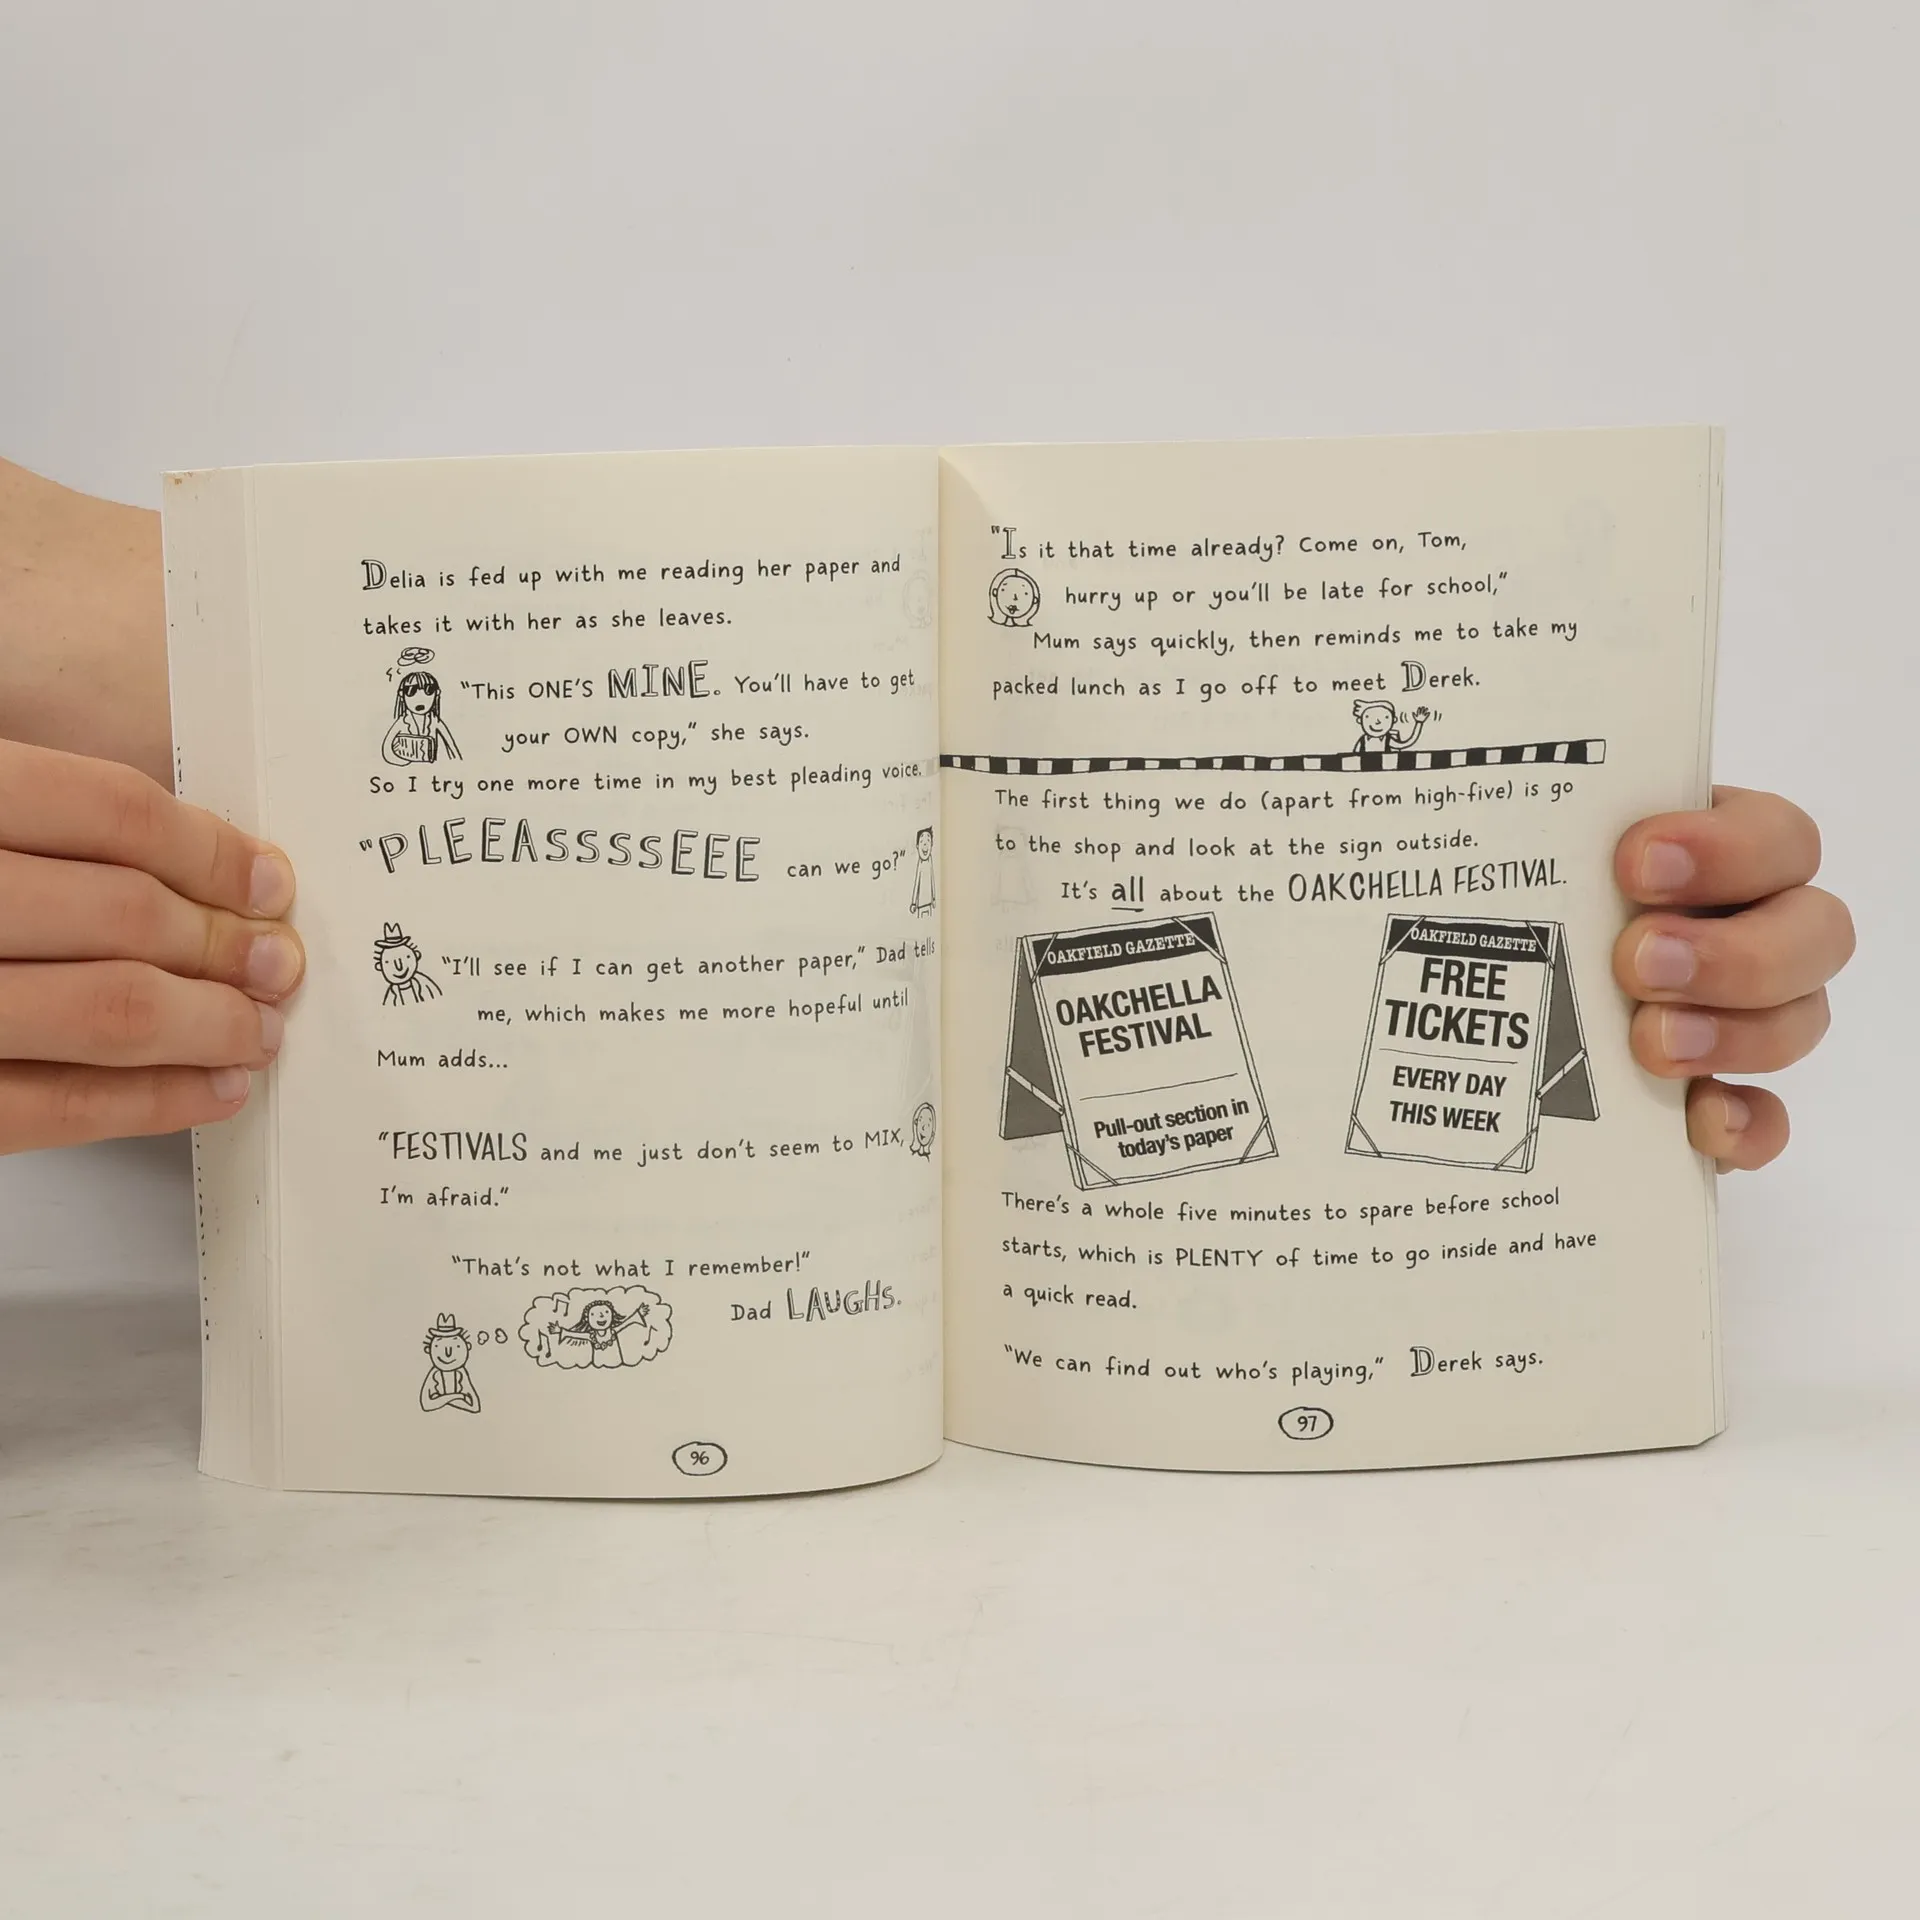 Delia is fed up with me reading her paper and
takes it with her as she leaves.
"This ONE'S MINE. You'll have to get
your OWN copy," she says.
So I try one more time in my best pleading voice.
"PLEEASSSSEEE can we go?"
"I'll see if I can get another paper," Dad tells
me, which makes me more hopeful until
Mum adds...
"FESTIVALS and me just don't seem to MIX,
I'm afraid."
"That's not what I remember!"
Dad LAUGHS.
96
"Is it that time already? Come on, Tom,
hurry up or you'll be late for school,"
Mum says quickly, then reminds me to take my
packed lunch as I go off to meet Derek.
The first thing we do (apart from high-five) is go
to the shop and look at the sign outside.
It's all about the OAKCHELLA FESTIVAL.
OAKFIELD GAZETTE
OAKCHELLA
FESTIVAL
Pull-out section in
today's paper
OAKFIELD GAZETTE
FREE
TICKETS
EVERY DAY
THIS WEEK
There's a whole five minutes to spare before school
starts, which is PLENTY of time to go inside and have
a quick read.
"We can find out who's playing," Derek says.
97